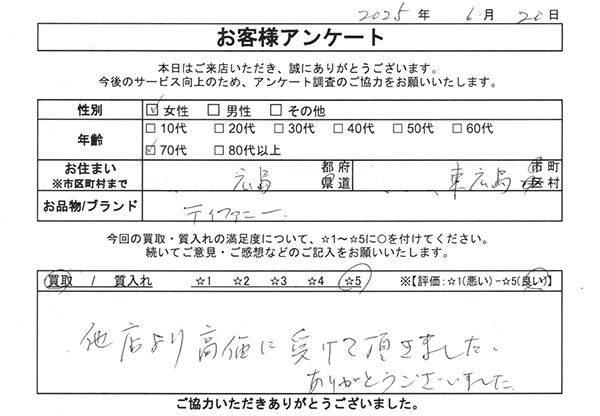 2025 年 6 月 20 日
お客様アンケート
本日はご来店いただき、誠にありがとうございます。
今後のサービス向上のため、アンケート調査のご協力をお願いいたします。
性別 ☑ 女性 □ 男性 □ その他
年齢 □ 10代 □ 20代 □ 30代 □ 40代 □ 50代 □ 60代
☑ 70代 □ 80代以上
お住まい ※市区町村まで 広島 都府県道 東広島 市町区村
お品物/ブランド ティファニー
今回の買取・質入れの満足度について、☆1～☆5に○を付けてください。
続いてご意見・ご感想などのご記入をお願いいたします。
買取 / 質入れ ☆1 ☆2 ☆3 ☆4 ☆5 ※【評価:☆1(悪い)-☆5(良い)】
他店より高価に受けて頂きました、
ありがとうございました
ご協力いただきありがとうございました。